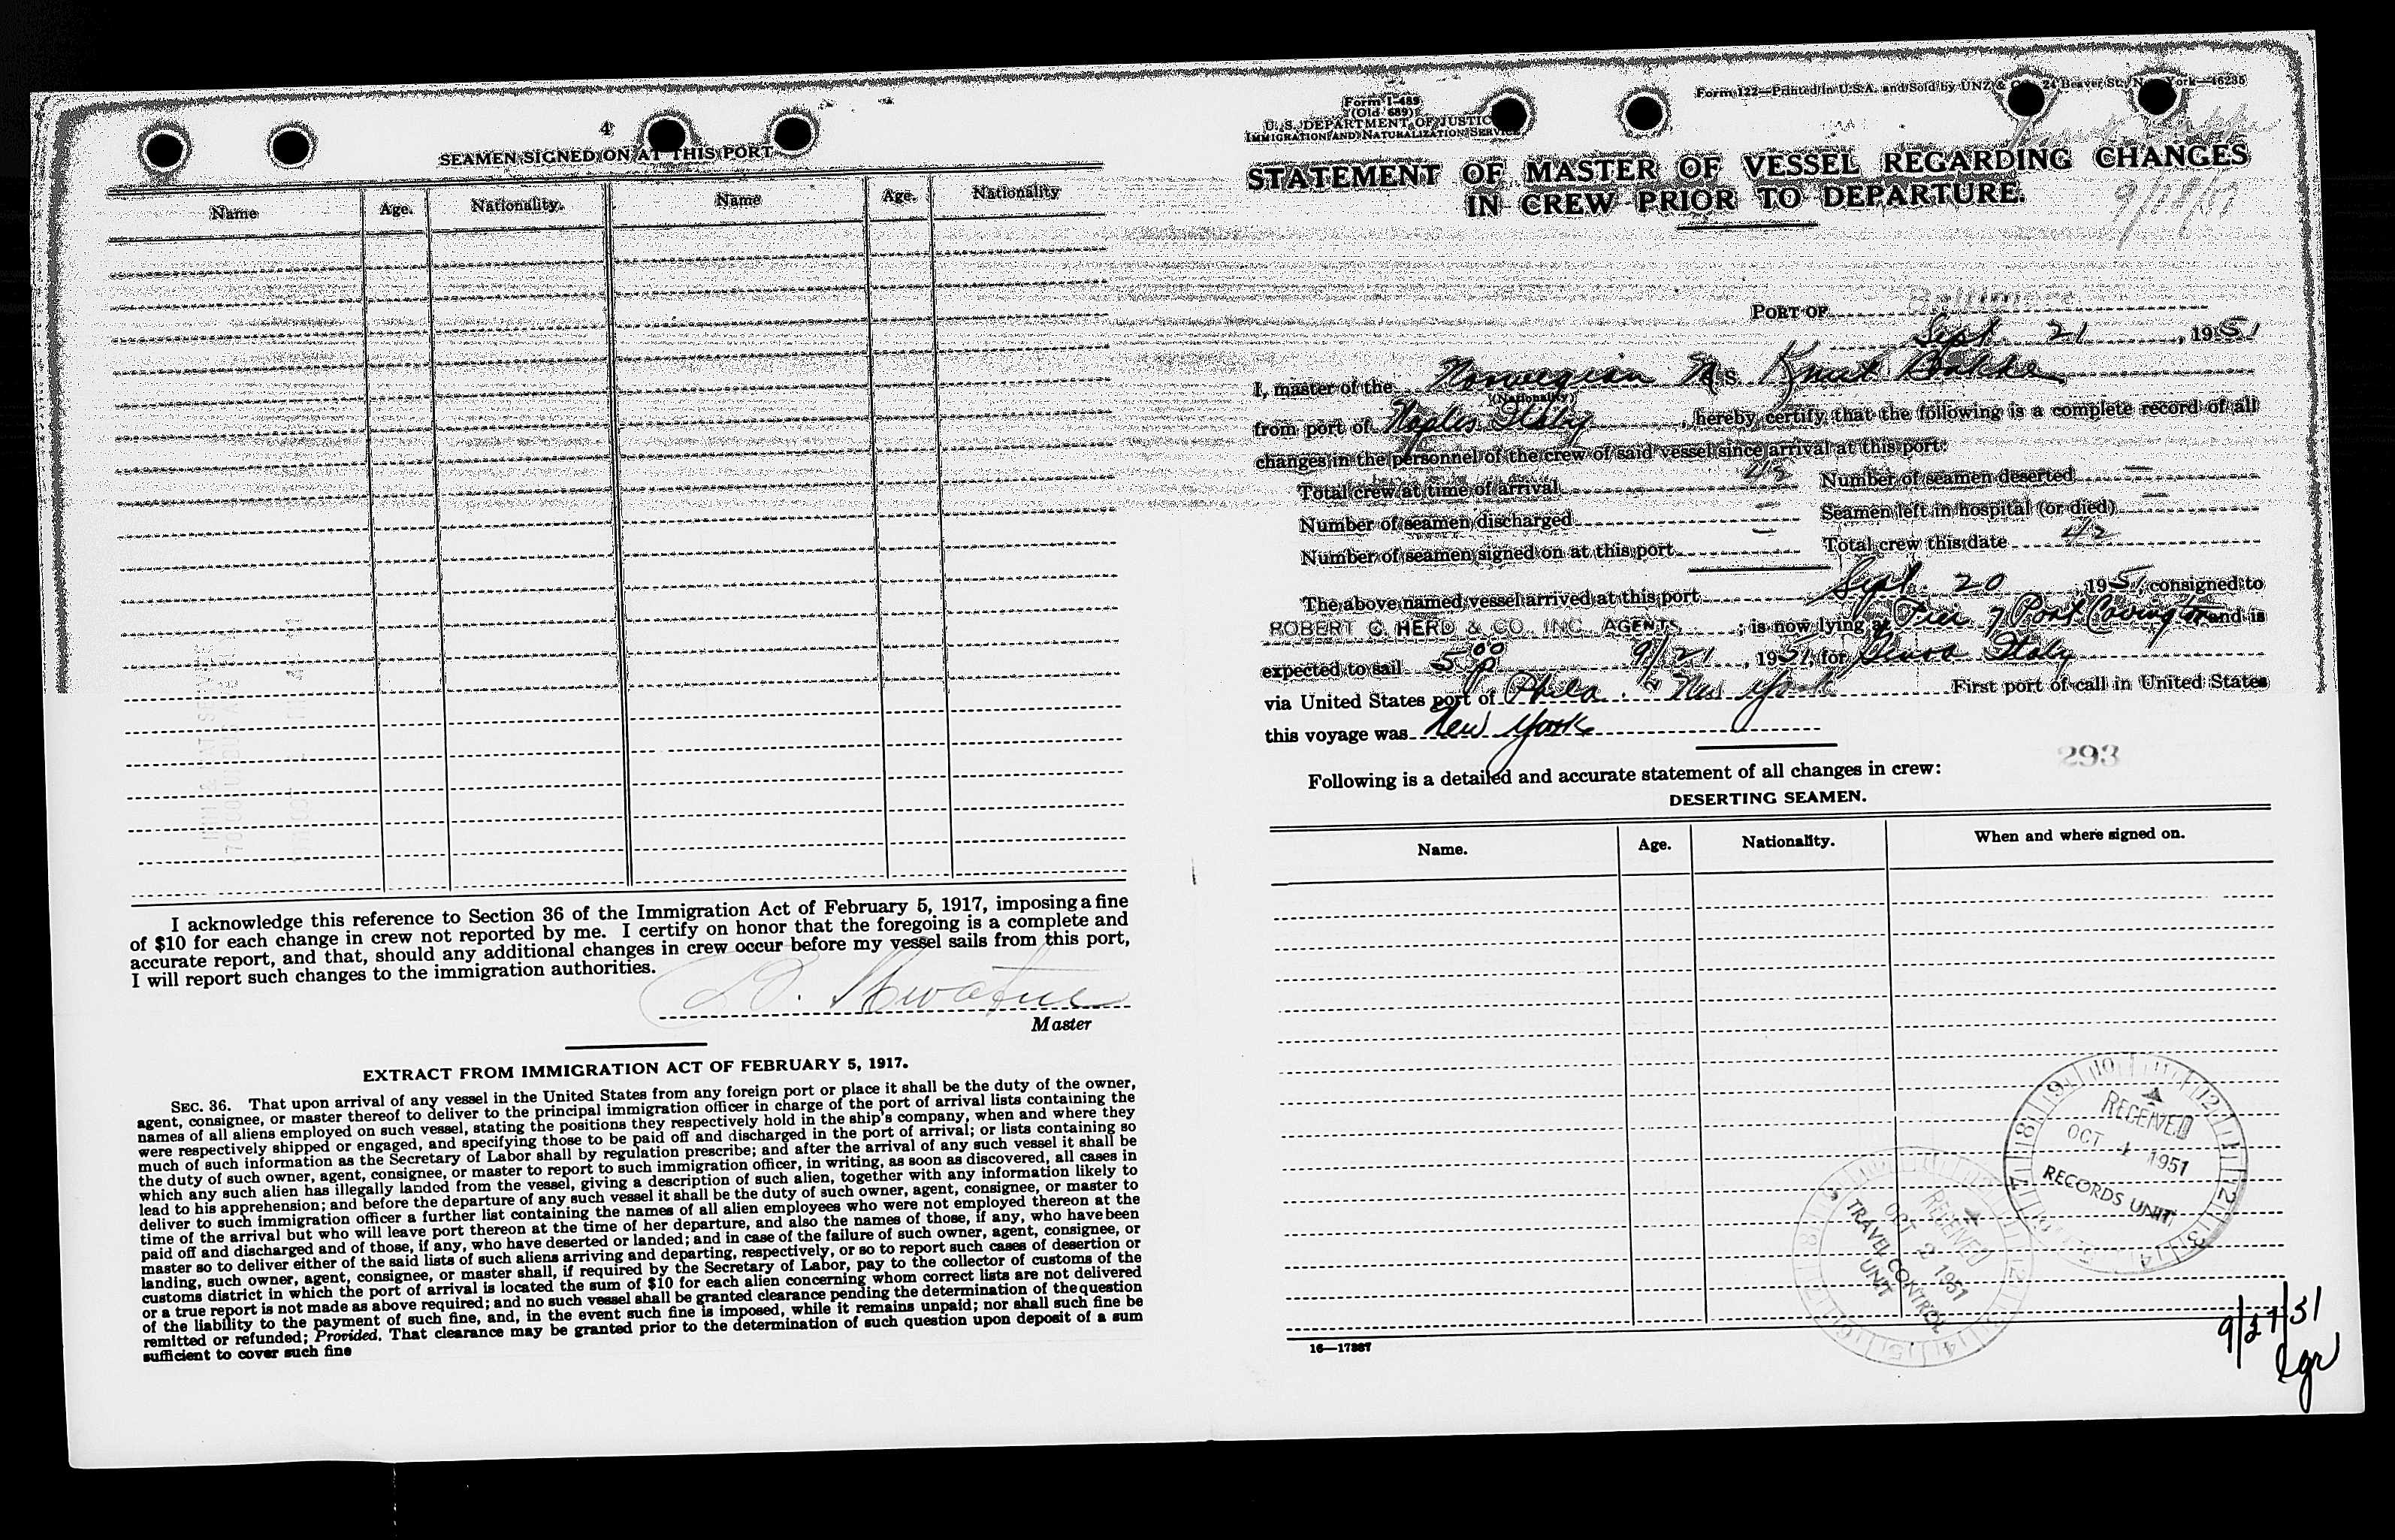 4
SEAMEN SIGNED ON AT THIS PORT
Name Age. Nationality. Name Age. Nationality
I acknowledge this reference to Section 36 of the Immigration Act of February 5, 1917, imposing a fine
of $10 for each change in crew not reported by me. I certify on honor that the foregoing is a complete and
accurate report, and that, should any additional changes in crew occur before my vessel sails from this port,
I will report such changes to the immigration authorities.
Master
EXTRACT FROM IMMIGRATION ACT OF FEBRUARY 5, 1917.
SEC. 36. That upon arrival of any vessel in the United States from any foreign port or place it shall be the duty of the owner,
agent, consignee, or master thereof to deliver to the principal immigration officer in charge of the port of arrival lists containing the
names of all aliens employed on such vessel, stating the positions they respectively hold in the ship's company, when and where they
were respectively shipped or engaged, and specifying those to be paid off and discharged in the port of arrival; or lists containing so
much of such information as the Secretary of Labor shall by regulation prescribe; and after the arrival of any such vessel it shall be
the duty of such owner, agent, consignee, or master to report to such immigration officer, in writing, as soon as discovered, all cases in
which any such alien has illegally landed from the vessel, giving a description of such alien, together with any information likely to
lead to his apprehension; and before the departure of any such vessel it shall be the duty of such owner, agent, consignee, or master to
deliver to such immigration officer a further list containing the names of all alien employees who were not employed thereon at the
time of the arrival but who will leave port thereon at the time of her departure, and also the names of those, if any, who have been
paid off and discharged and of those, if any, who have deserted or landed; and in case of the failure of such owner, agent, consignee, or
master so to deliver either of the said lists of such aliens arriving and departing, respectively, or so to report such cases of desertion or
landing, such owner, agent, consignee, or master shall, if required by the Secretary of Labor, pay to the collector of customs of the
customs district in which the port of arrival is located the sum of $10 for each alien concerning whom correct lists are not delivered
or a true report is not made as above required; and no such vessel shall be granted clearance pending the determination of the question
of the liability to the payment of such fine, and, in the event such fine is imposed, while it remains unpaid; nor shall such fine be
remitted or refunded; Provided, That clearance may be granted prior to the determination of such question upon deposit of a sum
sufficient to cover such fine
Form I-489
(Old 689)
U. S. DEPARTMENT OF JUSTIC
IMMIGRATION AND NATURALIZATION SERVICE
Form 122—Printed in U.S.A. and Sold by UNZ & 24 Beaver St., N York—46235
STATEMENT OF MASTER OF VESSEL REGARDING CHANGES
IN CREW PRIOR TO DEPARTURE.
PORT OF Baltimore
Sept. 21, 1951
I, master of the Norwegian M.S. Knut Bakke
(Nationality)
from port of Naples Italy, hereby certify that the following is a complete record of all
changes in the personnel of the crew of said vessel since arrival at this port:
Total crew at time of arrival 42 Number of seamen deserted —
Number of seamen discharged — Seamen left in hospital (or died) —
Number of seamen signed on at this port — Total crew this date 42
The above named vessel arrived at this port Sept. 20 1951, consigned to
ROBERT C. HERD & CO. INC. AGENTS; is now lying at Pier 7 Port Covington and is
expected to sail 5 00 P 9/21, 1951, for Genoa Italy
via United States port of Phila. & New York First port of call in United States
this voyage was New York
293
Following is a detailed and accurate statement of all changes in crew:
DESERTING SEAMEN.
Name. Age. Nationality. When and where signed on.
RECEIVED
OCT 1 1951
RECORDS UNIT
RECEIVED
OCT 2 1951
TRAVEL CONTROL
UNIT
16—17887
9/27/51